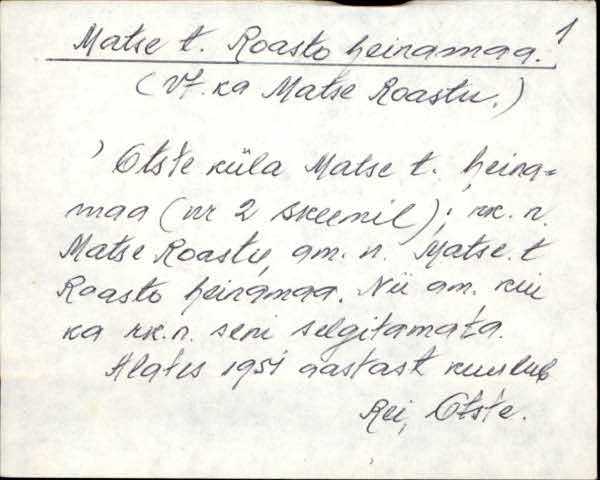 1
Matse t. Roasto heinamaa.
(Vt. ka Matse Roastu.)
Otste küla Matse t. heina-
maa (nr 2 skeemil); rk. n.
Matse Roastu, am. n. Matse t.
Roasto heinamaa. Nii am. kui
ka rk. n. seni selgitamata.
Alates 1951 aastast kuulub
Rei, Otste.